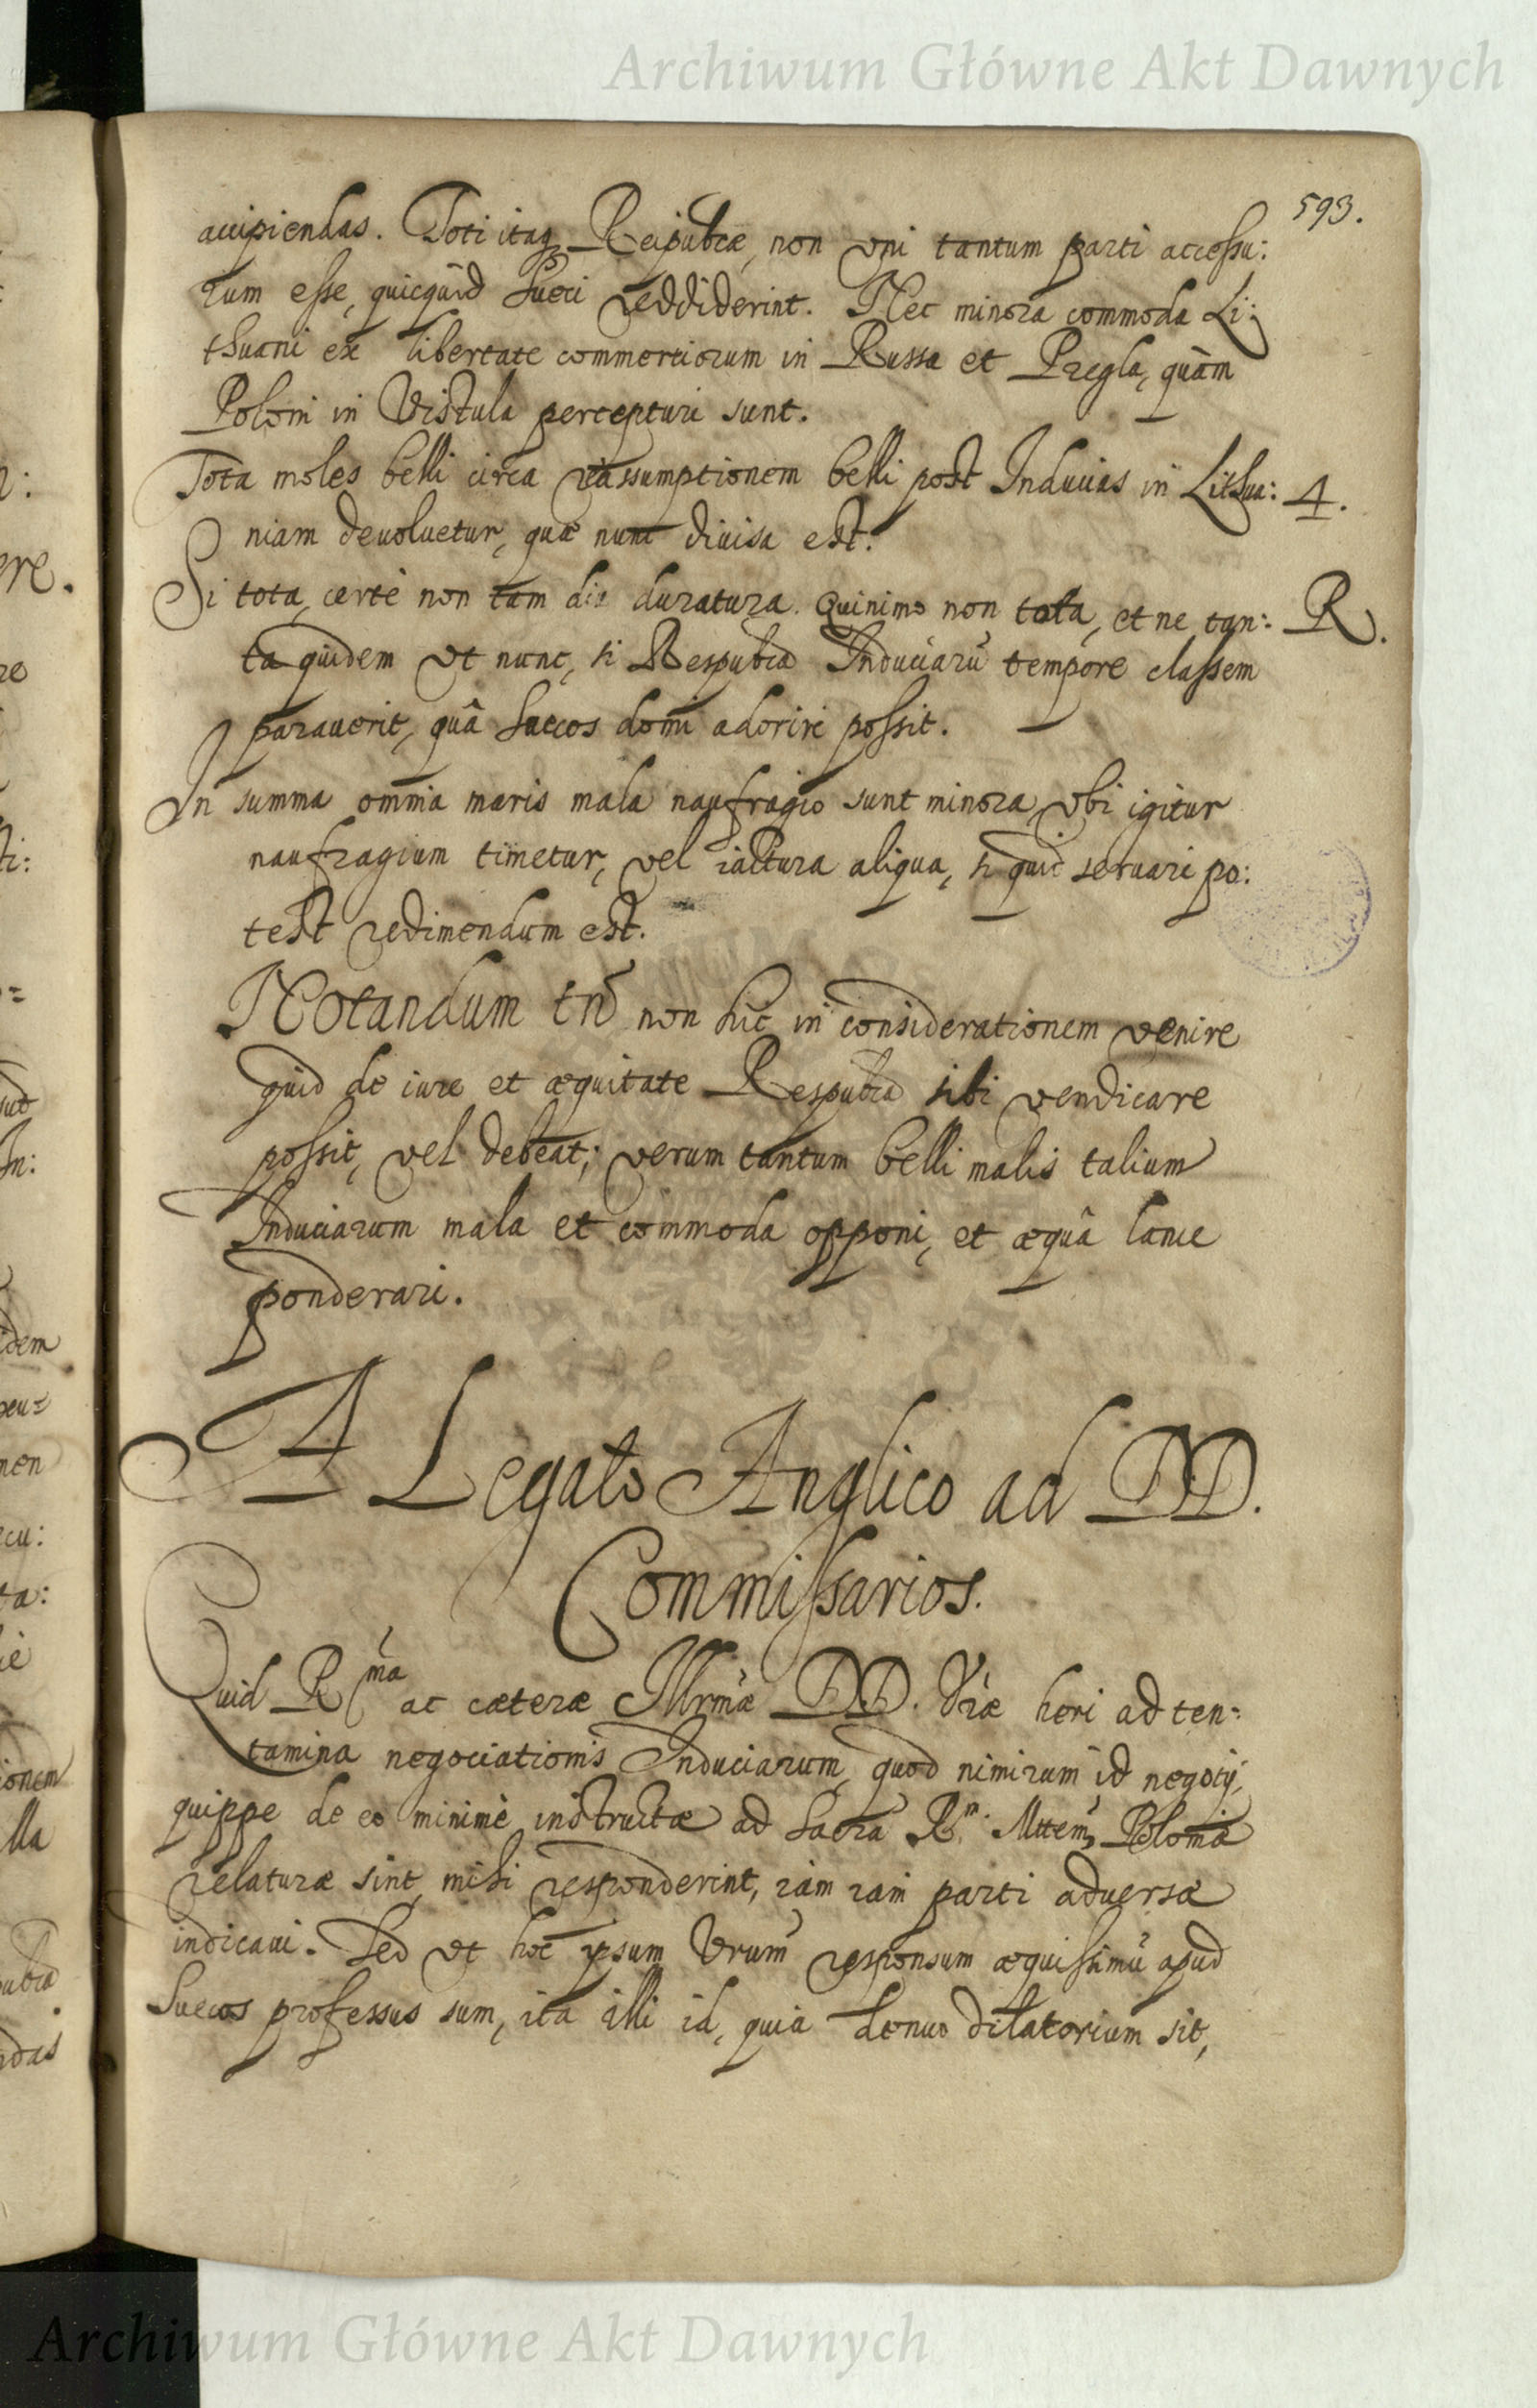 Archiwum Główne Akt Dawnych
593.
accipiendas. Toti itaq Reipubcæ, non vni tantum parti accessu:
rum esse, quicquid Sueci reddiderint. Nec minora commoda Li:
thuani ex libertate commertiorum in Russa et Pregla, quàm
Poloni in Vistula percepturi sunt.
Tota moles belli circa reassumptionem belli post Inducias in Lithua: 4.
niam deuoluetur, quæ nunc diuisa est.
Si tota, certè non tam diu duratura. Quinimo non tota, et ne tan: R.
ta quidem vt nunc, si Respubca Induciarũ tempore classem
parauerit, quâ Suecos domi adoriri possit.
In summa omnia maris mala naufragio sunt minora, vbi igitur
naufragium timetur, vel iactura aliqua, si quid seruari po:
test redimendum est.
Notandum tñ non hic in considerationem venire
quid de iure et æquitate Respubca sibi vendicare
possit, vel debeat; verum tantum belli malis talium
Induciarum mala et commoda opponi, et æquâ lance
ponderari.
A Legato Anglico ad DD.
Commissarios.
Quid Rma ac cæteræ Illrmæ DD. Vræ heri ad ten:
tamina negociationis Induciarum, quod nimirum id negotij,
quippe de eo minimè instructæ ad Sacra Rm. Mttem Poloniæ
relaturæ sint, mihi responderint, iam iam parti aduersæ
indicaui. Sed vt hoc ipsum Vrum responsum æquissimũ apud
Suecos professus sum, ita illi id, quia denuo dilatorium sit,
Archiwum Główne Akt Dawnych